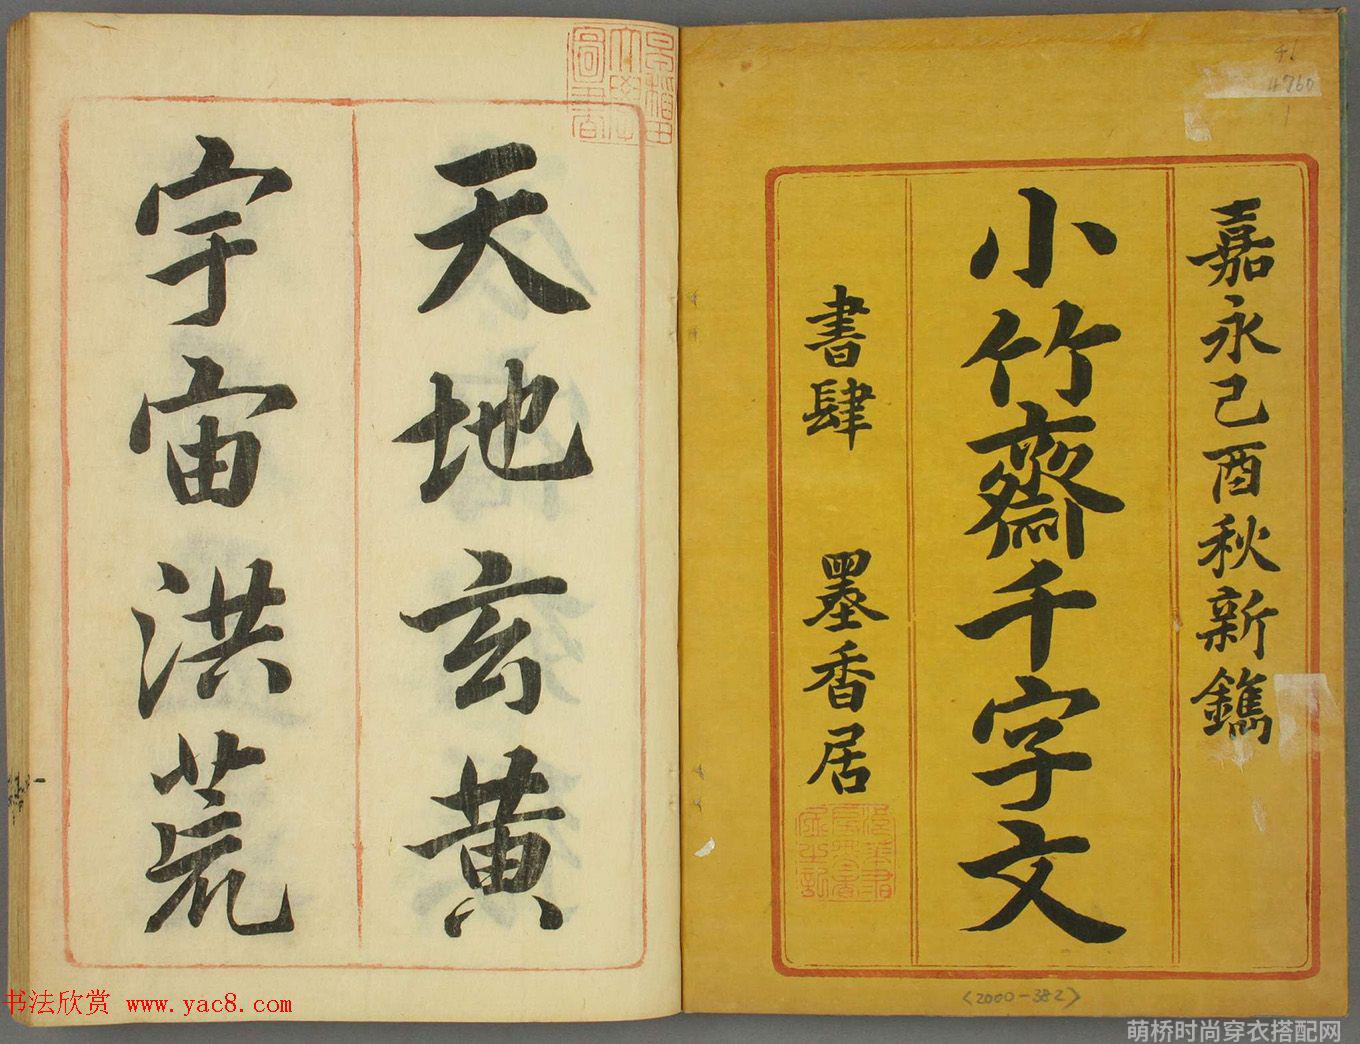 嘉永己酉秋新鐫
小竹齋千字文
書肆 墨香居
天地玄黄
宇宙洪荒
46
4760
1
<2000-382>
书法欣赏 www.yac8.com
萌桥时尚穿衣搭配网